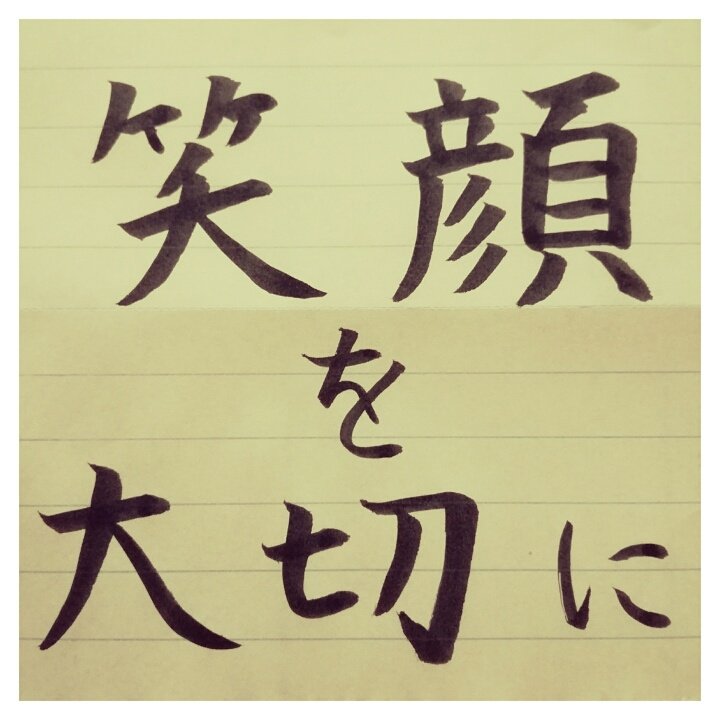 笑顔
を
大切に